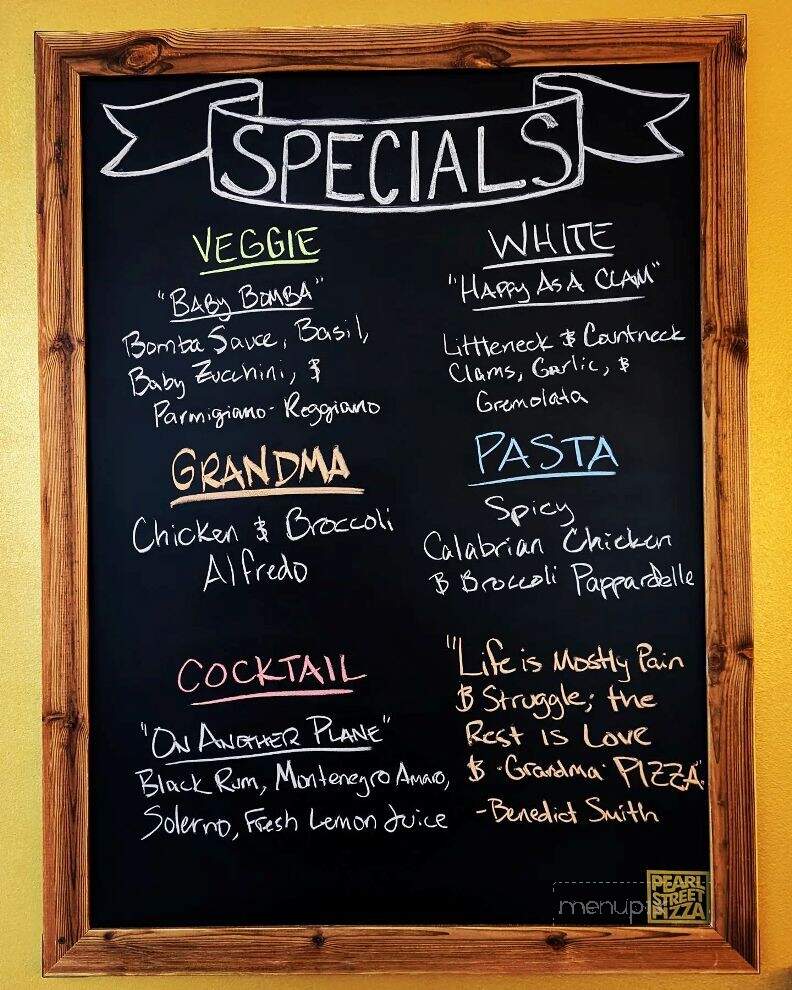 SPECIALS
VEGGIE
"BABY BOMBA"
Bomba Sauce, Basil,
Baby Zucchini, &
Parmigiano-Reggiano
WHITE
"HAPPY AS A CLAM"
Littleneck & Countneck
Clams, Garlic, &
Gremolata
GRANDMA
Chicken & Broccoli
Alfredo
PASTA
Spicy
Calabrian Chicken
& Broccoli Pappardelle
COCKTAIL
"ON ANOTHER PLANE"
Black Rum, Montenegro Amaro,
Solerno, Fresh Lemon Juice
"Life is Mostly Pain
& Struggle; the
Rest is Love
& Grandma PIZZA"
-Benedict Smith
PEARL
STREET
PIZZA
menup